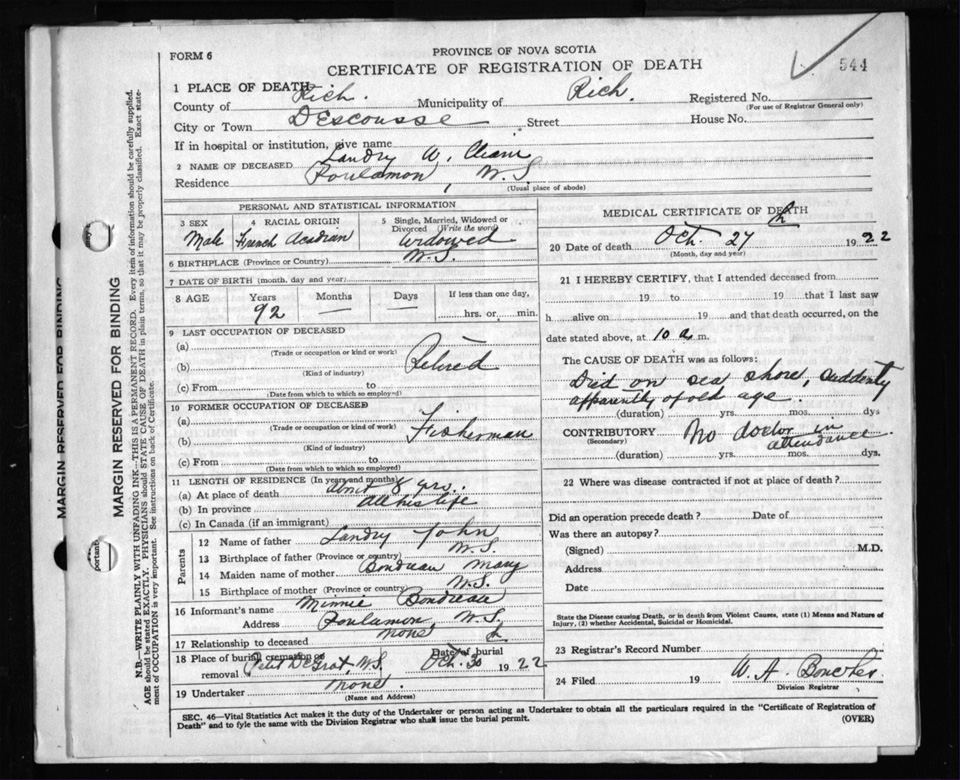 PROVINCE OF NOVA SCOTIA
FORM 6
CERTIFICATE OF REGISTRATION OF DEATH
544
1 PLACE OF DEATH
County of Rich. Municipality of Rich. Registered No.
(For use of Registrar General only)
City or Town DEscousse Street House No.
If in hospital or institution, give name
2 NAME OF DECEASED Landry W,
Residence Poulamon, N.S.
(Usual place of abode)
PERSONAL AND STATISTICAL INFORMATION
3 SEX 4 RACIAL ORIGIN 5 Single, Married, Widowed or Divorced (Write the word)
Male French Acadian widowed
6 BIRTHPLACE (Province or Country) N.S.
7 DATE OF BIRTH (month, day and year)
8 AGE Years Months Days If less than one day,
92 — — hrs. or min.
9 LAST OCCUPATION OF DECEASED
(a)
(Trade or occupation or kind or work)
(b) Retired
(Kind of industry)
(c) From to
(Date from which to which so employed)
10 FORMER OCCUPATION OF DECEASED
(a)
(Trade or occupation or kind of work)
(b) Fisherman
(Kind of industry)
(c) From to
(Date from which to which so employed)
11 LENGTH OF RESIDENCE (In years and months)
(a) At place of death about 8 yrs.
(b) In province all his life
(c) In Canada (if an immigrant)
Parents
12 Name of father Landry John
13 Birthplace of father (Province or country) N.S.
14 Maiden name of mother Bondreau Mary
15 Birthplace of mother (Province or country) N.S.
16 Informant's name Minnie Bondreau
Address Poulamon, N.S.
17 Relationship to deceased none
18 Place of burial cremation or removal Petit DeGrat, N.S. Date of burial Oct. 30 1922
19 Undertaker none.
(Name and Address)
MEDICAL CERTIFICATE OF DEATH
20 Date of death Oct. 27 1922
(Month, day and year)
21 I HEREBY CERTIFY, that I attended deceased from
19 to 19 that I last saw
h alive on 19 and that death occurred, on the
date stated above, at 10 a m.
The CAUSE OF DEATH was as follows:
Died on sea shore, suddenly
apparently of old age.
(duration) yrs. mos. dys
CONTRIBUTORY No doctor in
(Secondary) attendance.
(duration) yrs. mos. dys.
22 Where was disease contracted if not at place of death?
Did an operation precede death? Date of
Was there an autopsy?
(Signed) M.D.
Address
Date
State the Disease causing Death, or in death from Violent Causes, state (1) Means and Nature of
Injury, (2) whether Accidental, Suicidal or Homicidal.
23 Registrar's Record Number
24 Filed 19 W. A.
Division Registrar
SEC. 46—Vital Statistics Act makes it the duty of the Undertaker or person acting as Undertaker to obtain all the particulars required in the "Certificate of Registration of
Death" and to fyle the same with the Division Registrar who shall issue the burial permit. (OVER)
MARGIN RESERVED FOR BINDING
MARGIN RESERVED FOR BINDING
N.B.—WRITE PLAINLY WITH UNFADING INK—THIS IS A PERMANENT RECORD. Every item of information should be carefully supplied.
AGE should be stated EXACTLY. PHYSICIANS should STATE CAUSE OF DEATH in plain terms, so that it may be properly classified. Exact state-
ment of OCCUPATION is very important. See instructions on back of Certificate.